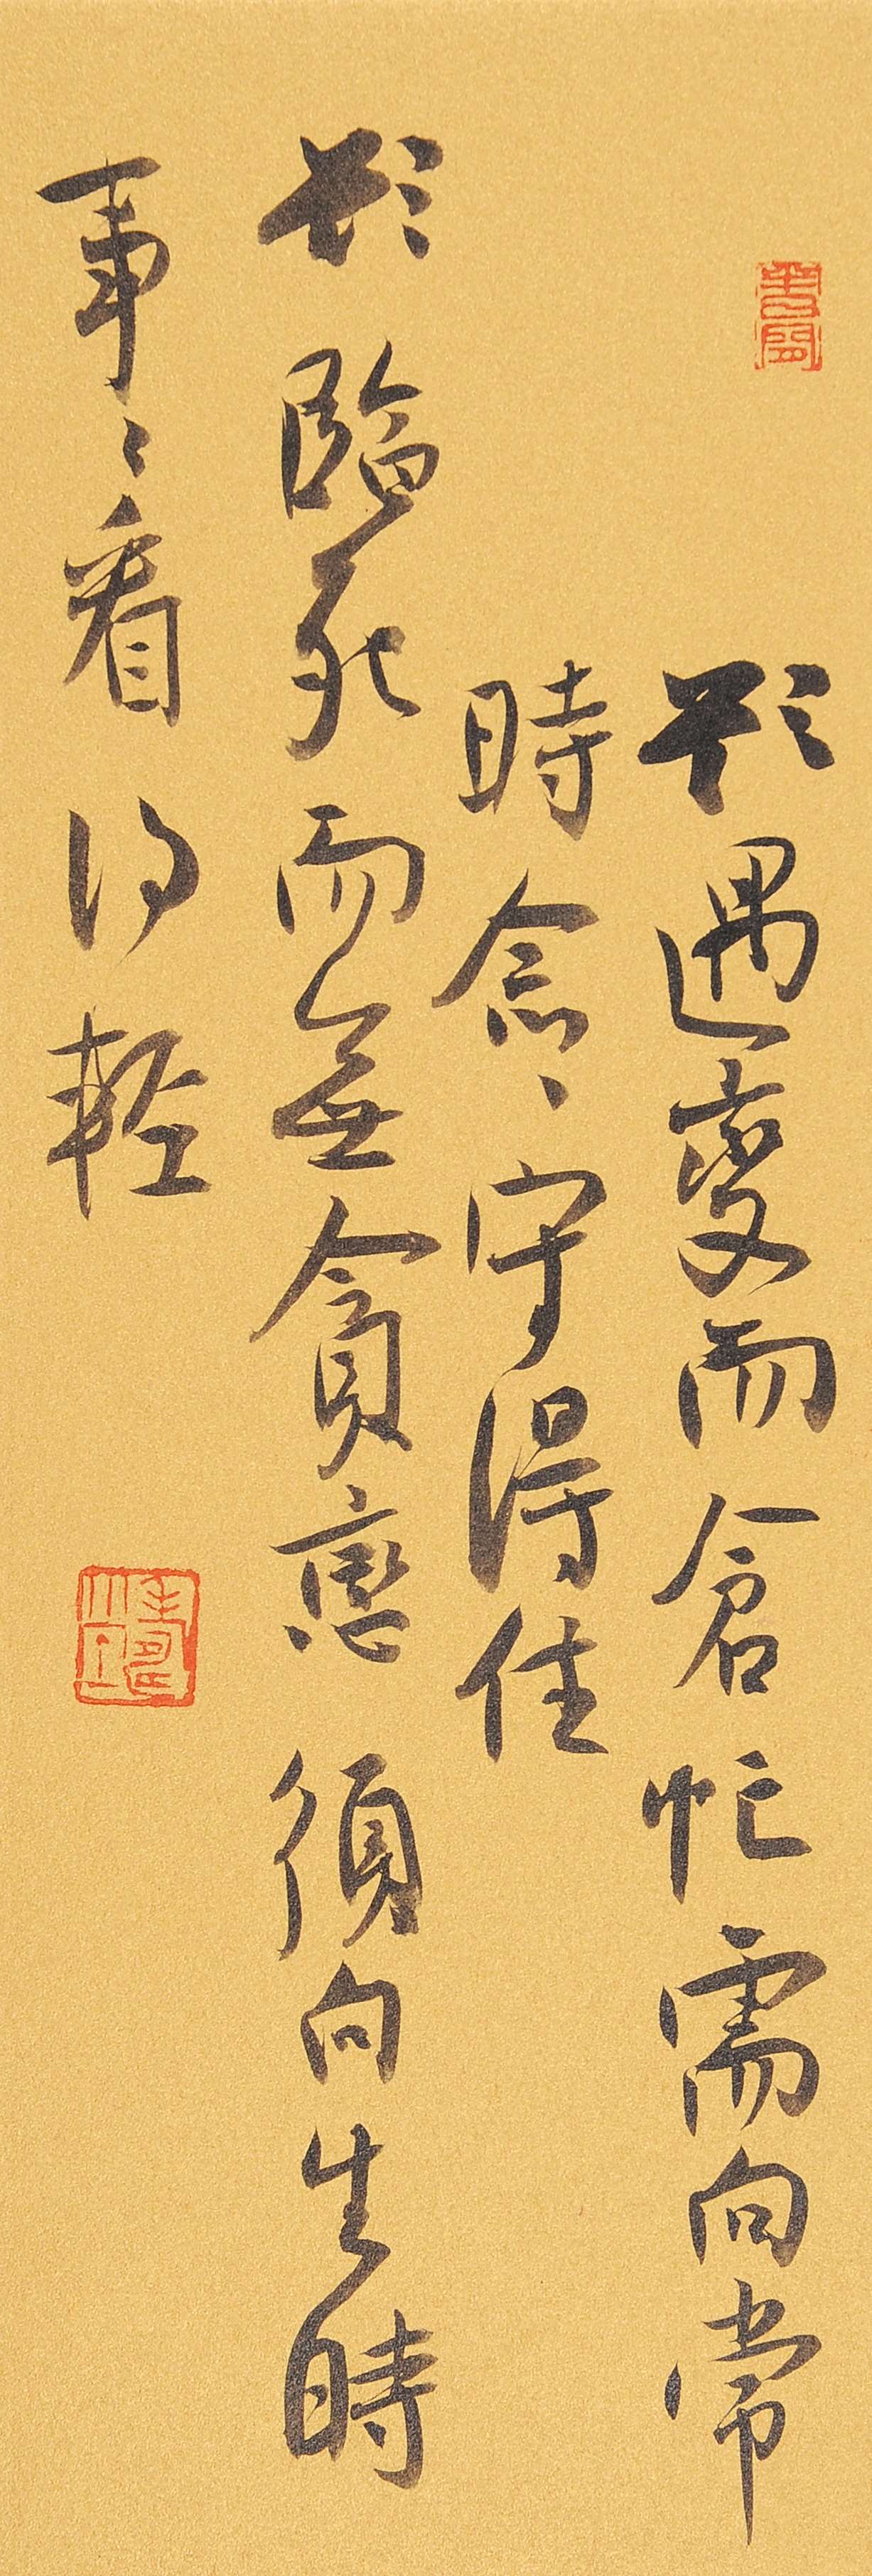 欲遇變而倉忙需向常
時念々守得住
欲臨死而無貪戀須向生時
事々看得輕